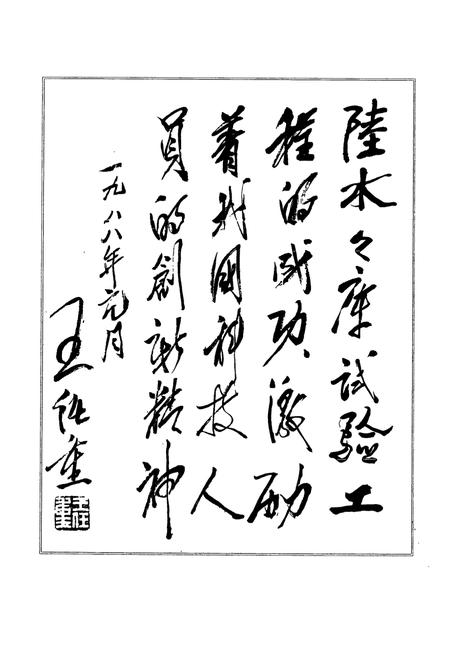 陸水々庫試驗工
程的成功,激励
着我國科技人
員的創新精神
一九八八年元月
王任重